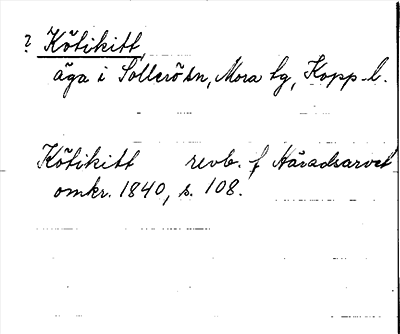 ? Kötikitt,
äga i Sollerö sn, Mora tg, Kopp. l.
Kötikitt revb. f Häradsarvet
omkr. 1840, s. 108.